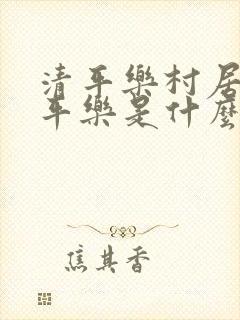 清平樂村居
平樂是什麼
焦其香